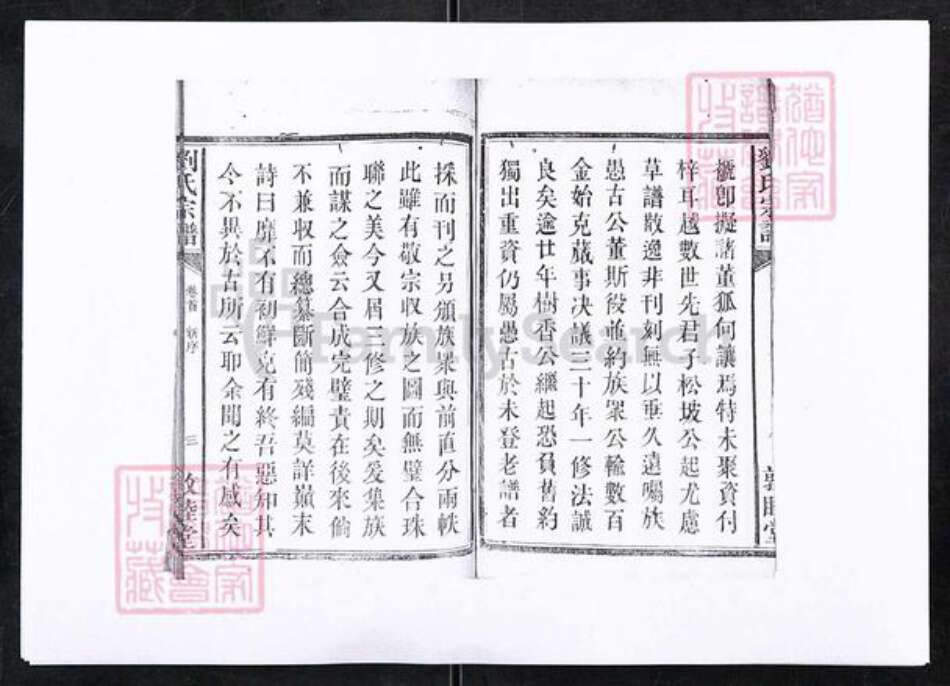 劉氏宗譜
敦睦堂
擬即擬諸董狐何讓焉特未聚資付
梓耳越數世先君子松坡公起尤慮
草譜散逸非刊刻無以垂久遠囑族
愚古公董斯役並約族眾公輸數百
金始克蕆事決議三十年一修法誠
良矣逾廿年樹香公繼起恐負舊約
獨出重資仍屬愚古於未登老譜者
採而刊之另頒族眾與前直分兩帙
此雖有敬宗收族之圖而無璧合珠
聯之美今又屆三修之期矣爰集族
而謀之僉云合成完璧責在後來倘
不兼取而總纂斷簡殘編莫詳巔末
詩曰靡不有初鮮克有終吾惡知其
今不異於古所云耶余聞之有感矣
劉氏宗譜
卷首 新序
三
敦睦堂
FamilySearch